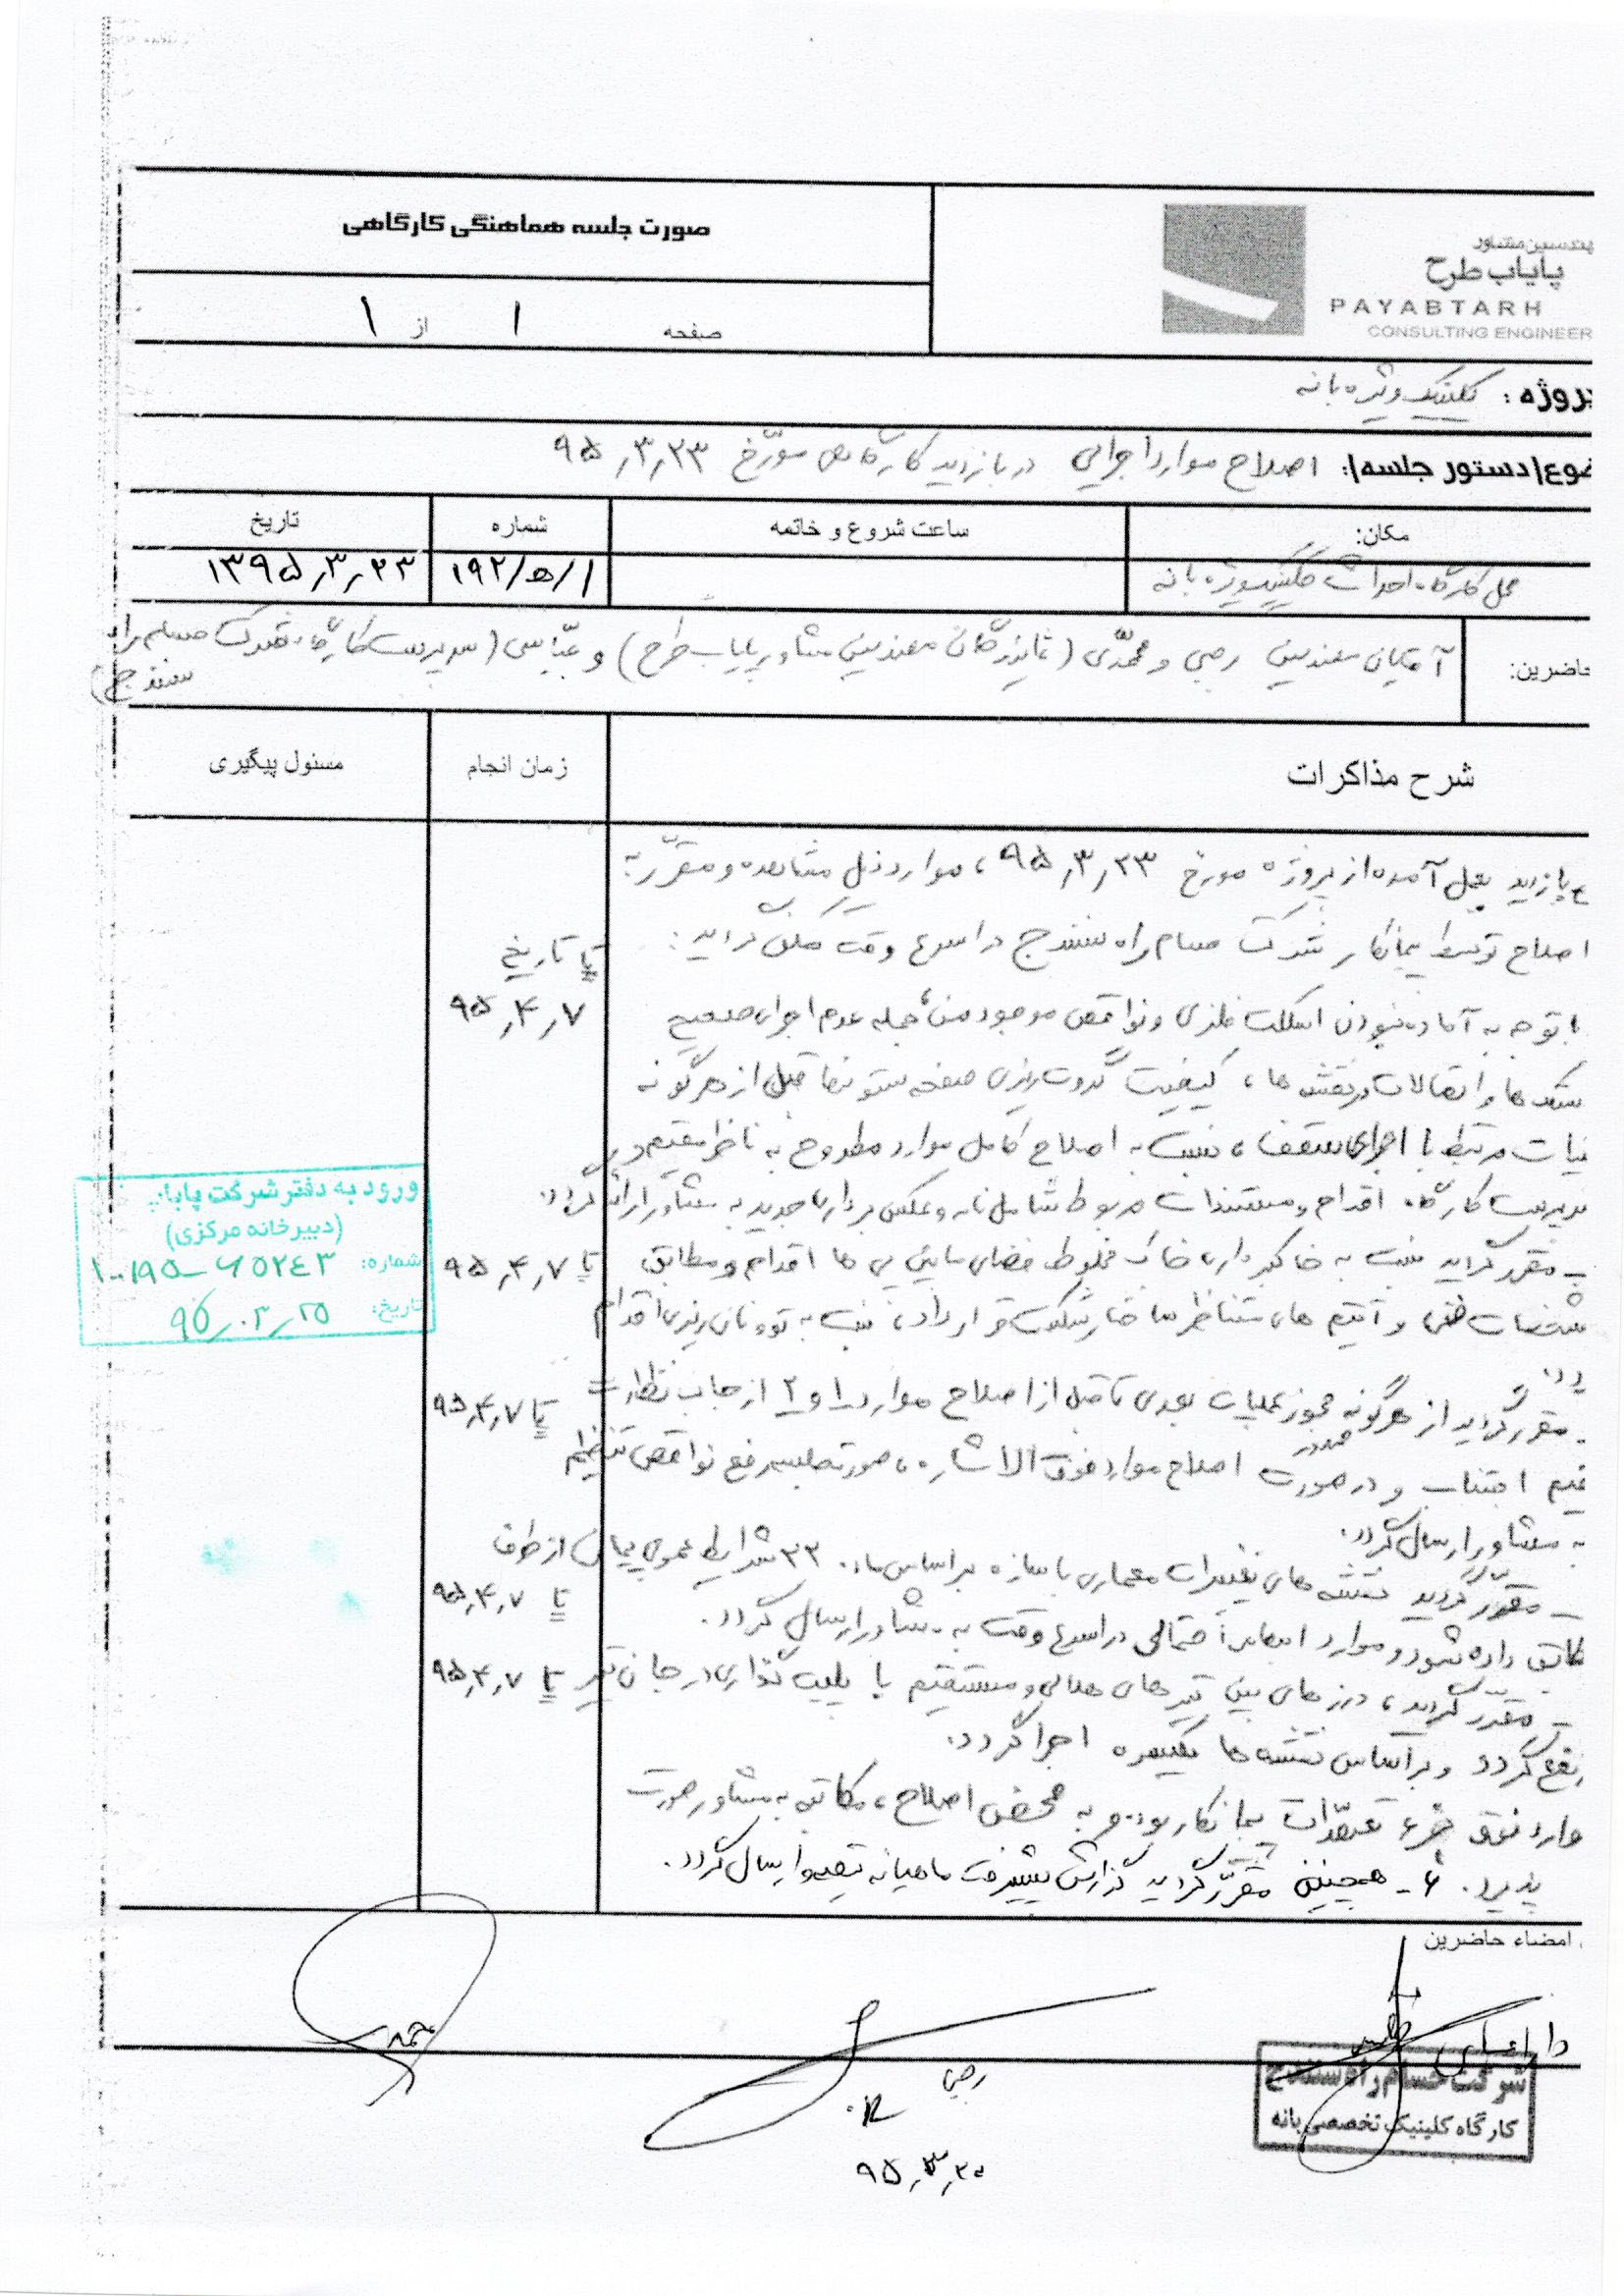 صورت جلسه هماهنگی کارگاهی
صفحه ۱ از ۱
مشاور
پایاب طرح
PAYABTARH
CONSULTING ENGINEER
پروژه : کلینیک ویژه بانه
دستور جلسه: اصلاح موارد اجرایی در بازدید کارگاهی مورّخ ۹۵٫۳٫۲۳
مکان:
ساعت شروع و خاتمه
شماره
تاریخ
محل کارگاه احداث کلینیک ویژه بانه
۱۹۲/ه/۱
۱۳۹۵٫۳٫۲۳
حاضرین: آقایان مهندسین رجبی و محمّدی (نمایندگان مهندسین مشاور پایاب طرح) و عبّاسی (سرپرست کارگاه شرکت حسام راه
سنندج)
شرح مذاکرات
زمان انجام
مسئول پیگیری
بازدید بعمل آمده از پروژه مورخ ۹۵٫۳٫۲۳، موارد ذیل مشاهده و مقرّر به
اصلاح توسط پیمانکار شرکت حسام راه سنندج در اسرع وقت گردید:
تا تاریخ
۹۵٫۴٫۷
با توجه به آماده نبودن اسکلت فلزی و نواقص موجود من جمله عدم اجرای صحیح
و اتصالات در نقشه ها، کیفیت گروت ریزی صفحه ستونها قبل از هرگونه
مرتبط با اجرای سقف، نسبت به اصلاح کامل موارد مطروح به ناظر مقیم و
کارگاه اقدام و مستندات مربوط شامل نامه و عکس برداری جدید به مشاور ارائه گردد.
مقرر گردید نسبت به خاکبرداری خاک مخلوط فضای مابین پی ها اقدام و مطابق
تا ۹۵٫۴٫۷
مشخصات فنی و آیتم های متناظر قرارداد، نسبت به ریزی اقدام
گردد.
مقرر گردید از هرگونه مجوز عملیات بعدی تا قبل از اصلاح موارد ۱ و ۲ از جانب نظارت
تا ۹۵٫۴٫۷
مقیم اجتناب و در صورت اصلاح موارد فوق الاشاره، صورتجلسه رفع نواقص تنظیم
به مشاور ارسال گردد.
مقرّر گردید نقشه های تغییرات معماری با سازه بر اساس ماده ۳۳ شرایط عمومی پیمان از طرف
تا ۹۵٫۴٫۷
داده شود و موارد ابهامی احتمالی در اسرع وقت به مشاور ارسال گردد.
مقرّر گردید، درزهای بین تیرهای حمالی و مستقیم با پلیت گذاری در جان تیر
تا ۹۵٫۴٫۷
رفع گردد و بر اساس نقشه ها یکسره اجرا گردد.
موارد فوق جزء تعهّدات پیمانکار بوده و به محض اصلاح، مکاتبه به مشاور صورت
پذیرد. ۶- همچنین مقرّر گردید گزارش پیشرفت ماهیانه تهیه و ارسال گردد.
ورود به دفتر شرکت پایاب
(دبیرخانه مرکزی)
شماره: ۱۰۰/۹۵-۶۵۲۴۳
تاریخ: ۹۵٫۰۳٫۲۵
امضاء حاضرین
محمدی
رجبی
شرکت حسام راه سنندج
کارگاه کلینیک تخصصی بانه